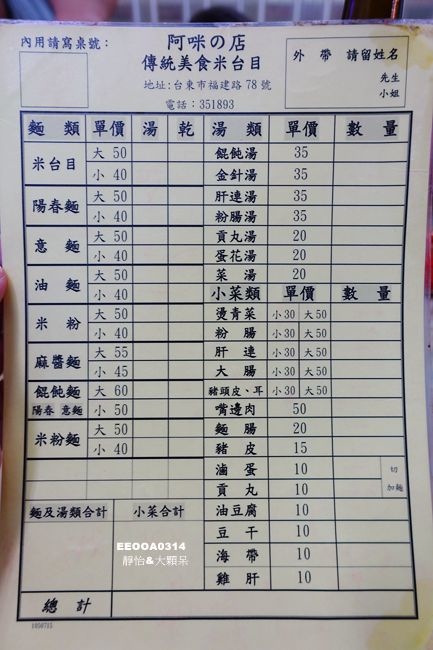 內用請寫桌號：
阿咪の店
傳統美食米台目
地址：台東市福建路 78 號
電話：351893
外 帶 請留姓名
先生
小姐
麵 類 單價 湯 乾 湯 類 單價 數 量
米台目 大 50 餛飩湯 35
小 40 金針湯 35
陽春麵 大 50 肝連湯 35
小 40 粉腸湯 35
意 麵 大 50 貢丸湯 20
小 40 蛋花湯 20
油 麵 大 50 菜 湯 20
小 40 小菜類 單價 數 量
米 粉 大 50 燙青菜 小30 大50
小 40 粉 腸 小30 大50
麻醬麵 大 55 肝 連 小30 大50
小 45 大 腸 小30 大50
餛飩麵 大 60 豬頭皮、耳 小30 大50
陽春 意麵 小 50 嘴邊肉 50
米粉麵 大 50 麵 腸 20
小 40 豬 皮 15
滷 蛋 10 切
貢 丸 10 加麵
麵及湯類合計 小菜合計 油豆腐 10
豆 干 10
海 帶 10
雞 肝 10
EEOOA0314
靜怡&大顆呆
總 計
1050715